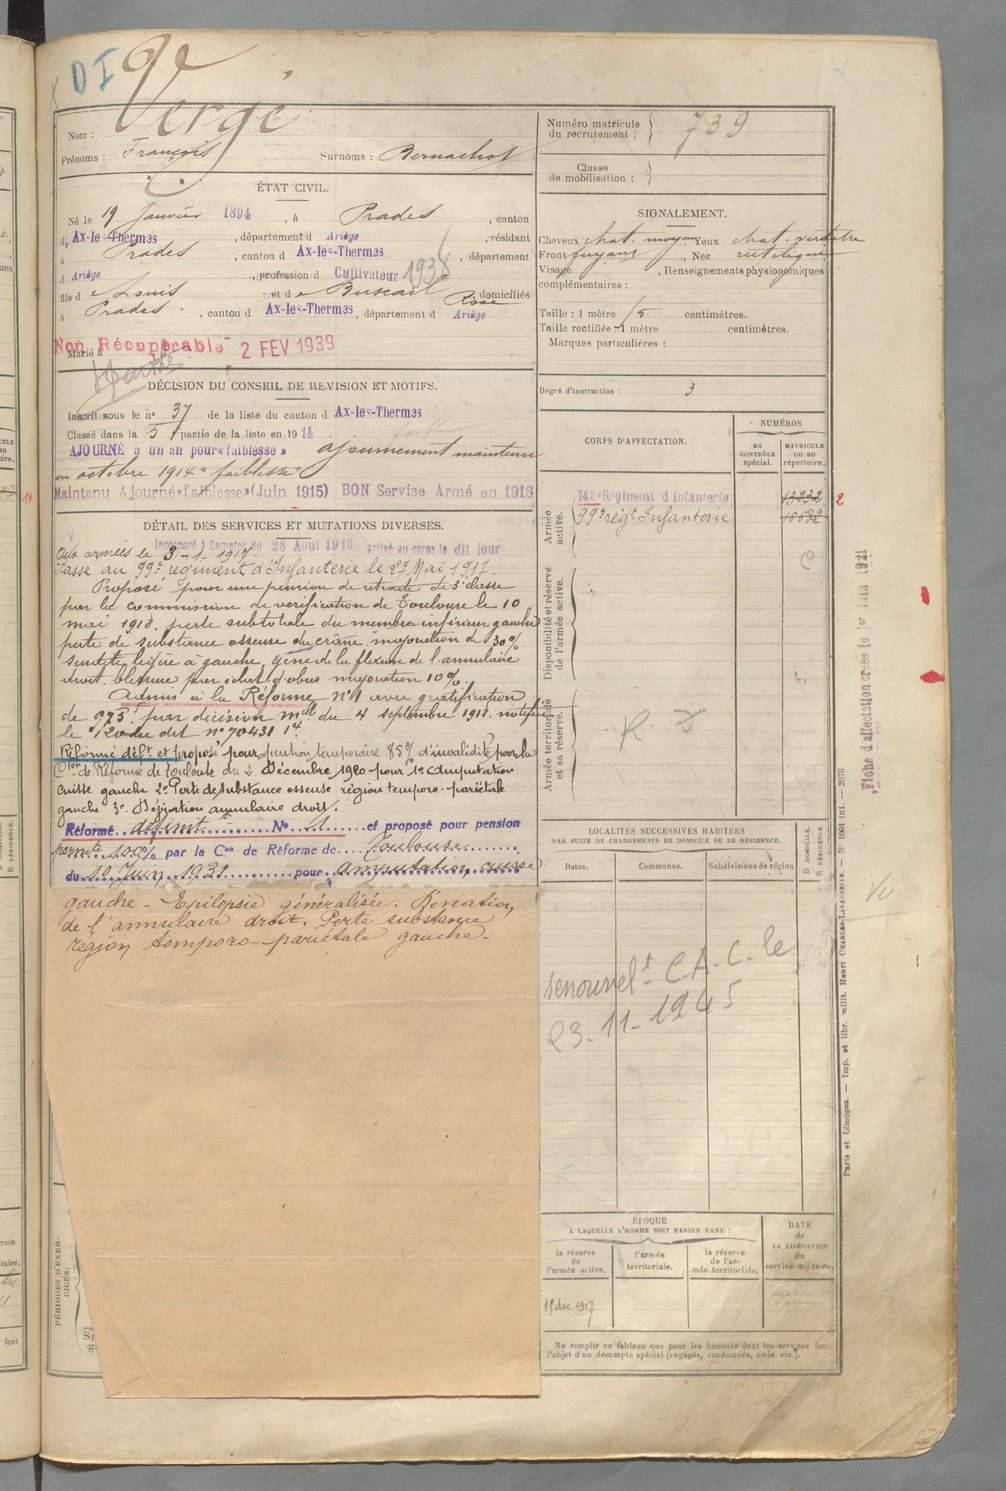 DI
Vergé
Nom :
Prénoms : François Surnoms : Bernachot
ÉTAT CIVIL.
Né le 19 Janvier 1894, à Prades, canton
d Ax-les-Thermes, département d Ariège, résidant
à Prades, canton d Ax-les-Thermes, département
d Ariège, profession d Cultivateur 1938
fils d e Louis et d e Buscail Rose domiciliés
à Prades, canton d Ax-les-Thermes, département d Ariège
Non Récupérable 2 FEV 1939
Marié à
DÉCISION DU CONSEIL DE REVISION ET MOTIFS.
Inscrit sous le n° 37 de la liste du canton d Ax-les-Thermes
Classé dans la 5 partie de la liste en 1914
AJOURNÉ à un an pour «faiblesse» ajournement maintenu
en octobre 1914 "faiblesse"
Maintenu Ajourné «faiblesse» (Juin 1915) BON Service Armé en 1916
DÉTAIL DES SERVICES ET MUTATIONS DIVERSES.
Incorporé à compter du 28 Août 1916 arrivé au corps le dit jour
Aux armées le 3-1-1917.
Passé au 99e régiment d'Infanterie le 27 Mai 1917.
Proposé pour une pension de retraite de 3e classe
par la commission de vérification de Toulouse le 10
mai 1918. perte subtotale du membre inférieur gauche
perte de substance osseuse du crâne. majoration de 30%
surdité légère à gauche, gêne de la flexion de l'annulaire
droit. blessure par éclat d'obus majoration 10%.
Admis à la Réforme n°1 avec gratification
de 975f par décision mlle du 4 septembre 1918. notifiée
le 20 du dit n° 70431
Réformé déft et proposé pour pension temporaire 85% d'invalidité par la
Cion de Réforme de Toulouse du 2 Décembre 1920 pour 1° amputation
cuisse gauche 2° Perte de substance osseuse région temporo-pariétale
gauche 3° Déviation annulaire droit.
Réformé définit N° 1 et proposé pour pension
permte 100% par la Con de Réforme de Toulouse
du 10 Juin 1931 pour amputation cuisse
gauche - Epilepsie généralisée. Déviation
de l'annulaire droit. Perte substance
région temporo-pariétale gauche.
PÉRIODES D'EXER-
CICES.
Numéro matricule
du recrutement : 739
Classe
de mobilisation :
SIGNALEMENT.
Cheveux chat. moyen Yeux chat. verdatre
Front fuyant, Nez rectiligne
Visage, Renseignements physionomiques
complémentaires :
Taille : 1 mètre 75 centimètres.
Taille rectifiée 1 mètre centimètres.
Marques particulières :
Degré d'instruction : 3
CORPS D'AFFECTATION.
NUMÉROS
AU
CONTRÔLE
spécial.
MATRICULE
ou au
répertoire.
Armée
active.
143e Régiment d'Infanterie 13232
99e régt Infanterie 16682
2
Disponibilité et réserve
de l'armée active.
Armée territoriale
et sa réserve.
LOCALITÉS SUCCESSIVES HABITÉES
PAR SUITE DE CHANGEMENTS DE DOMICILE OU DE RÉSIDENCE.
Dates. Communes. Subdivisions de région
D DOMICILE.
R RÉSIDENCE.
renouvelt C.A.C. le
23-11-1945
ÉPOQUE
A LAQUELLE L'HOMME DOIT PASSER DANS :
la réserve
de
l'armée active,
l'armée
territoriale.
la réserve
de l'ar-
mée territoriale.
DATE
de
LA LIBÉRATION
du
service militaire.
15 dec 1917
Ne remplir ce tableau que pour les hommes dont les services font
l'objet d'un décompte spécial (engagés, condamnés, omis, etc.).
Fiche d'affectation créée le 1er Juin 1921
Vu
Paris et Limoges. — Imp. et libr. milit. Henri CHARLES-LAVAUZELLE.